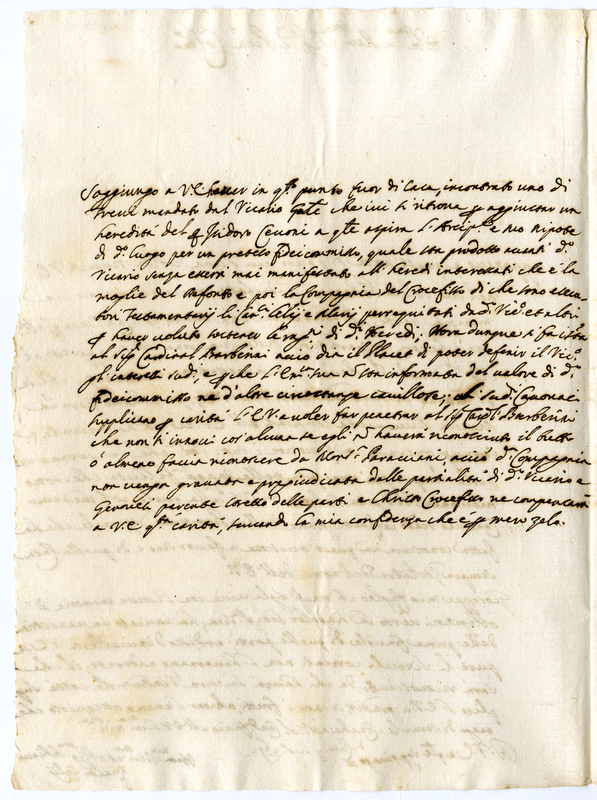 Soggiungo a V.E. haver in q.to punto fuor di Casa, incontrato uno di
Trevi mandato dal Vicario Gn̄te che ivi si ritrova p aggiustar un
heredità del q Isidoro Ceruoni a q̄te aspira l'Arcip.te e suo Nipote
di d.o luogo per un preteso fideicommisso, quale sta prodotto avanti d.o
Vicario senza essersi mai manifestato all' Heredi interessati che è la
moglie del defonto e poi la Compagnia del Crocefisso di che sono esecu
tori Testamentarij li Can.ci perseguitati da d.o Vic.o et altri
p haver voluto sostener le rag.ni di d.i Heredi, Hora dunque si fa ist.a
al Sig Cardinal Barberini acciò dia il Placet di poter definir il Vic.o
gl' interessi sud.i, e p che l'Em.za sua n̄ sta informata del valore di d.o
fideicommisso ne d'altre circostanze cavillose; li sud.i Canonaci
supplicano p carità l'E.V. a voler far penetrar al Sig Card.l Barberini
che non s'innovi cos' alcuna se egli n̄ haverà riconosciuto il tutto
ò almeno faccia riconoscere da Mons.r Paracciani, acciò d.a Compagnia
non venga gravata e pregiudicata dalle partialità di d.o Vicario e
parente stretto delle parti e Christo Crocefisso ne compenserà
a V.E. q.sta carità, scusando la mia confidenza che è p mero zelo.